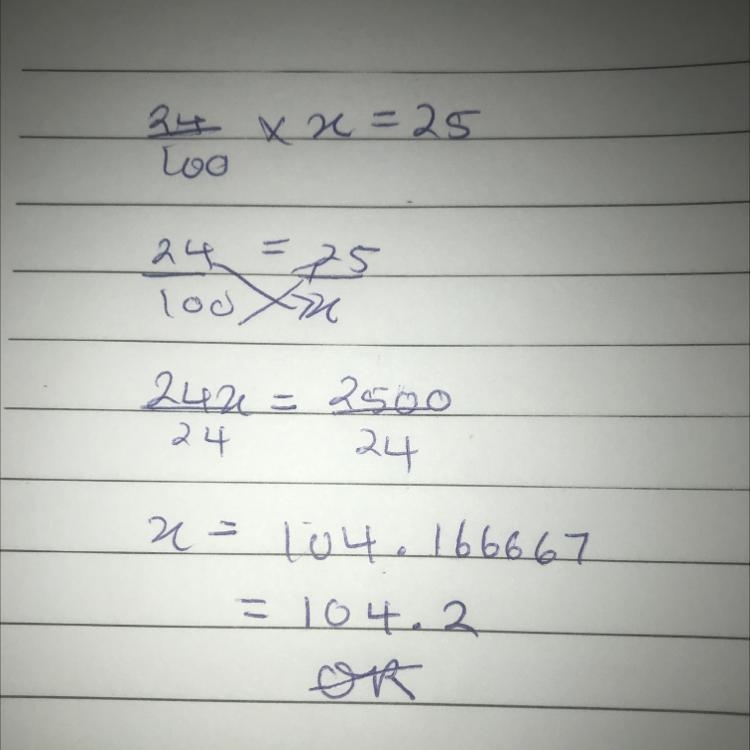 24/100 × x = 25
24/100 = 25/x
24x/24 = 2500/24
x = 104.166667
= 104.2
OR